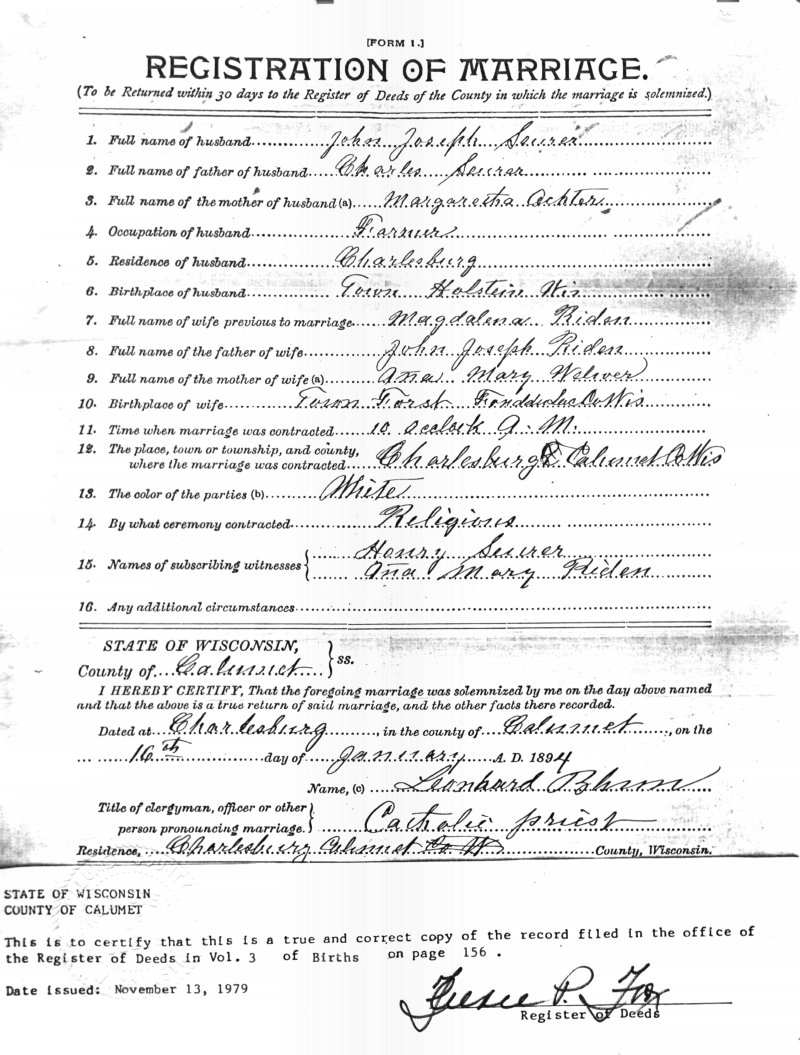 [FORM 1.]
REGISTRATION OF MARRIAGE.
(To be Returned within 30 days to the Register of Deeds of the County in which the marriage is solemnized.)
1. Full name of husband John Joseph Seurer
2. Full name of father of husband Charles Seurer
3. Full name of the mother of husband (a) Margaretha Ochter
4. Occupation of husband Farmer
5. Residence of husband Charlesburg
6. Birthplace of husband Town Holstein Wis
7. Full name of wife previous to marriage Magdalena Riden
8. Full name of the father of wife John Joseph Riden
9. Full name of the mother of wife (a) Ana Mary
10. Birthplace of wife Town Forst Fonddulac Co Wis
11. Time when marriage was contracted 10 oclock A. M.
12. The place, town or township, and county,
where the marriage was contracted Charlesburg Calumet Co Wis
13. The color of the parties (b) White
14. By what ceremony contracted Religious
15. Names of subscribing witnesses { Henry Seurer
Ana Mary Riden
16. Any additional circumstances
STATE OF WISCONSIN,
County of Calumet } ss.
I HEREBY CERTIFY, That the foregoing marriage was solemnized by me on the day above named
and that the above is a true return of said marriage, and the other facts there recorded.
Dated at Charlesburg, in the county of Calumet, on the
16th day of January A. D. 1894
Name, (c) Leonhard Blum
Title of clergyman, officer or other
person pronouncing marriage. } Catholic priest
Residence, Charlesburg Calumet Co W County, Wisconsin.
STATE OF WISCONSIN
COUNTY OF CALUMET
This is to certify that this is a true and correct copy of the record filed in the office of
the Register of Deeds in Vol. 3 of Births on page 156 .
Date issued: November 13, 1979
P. Fox
Register of Deeds